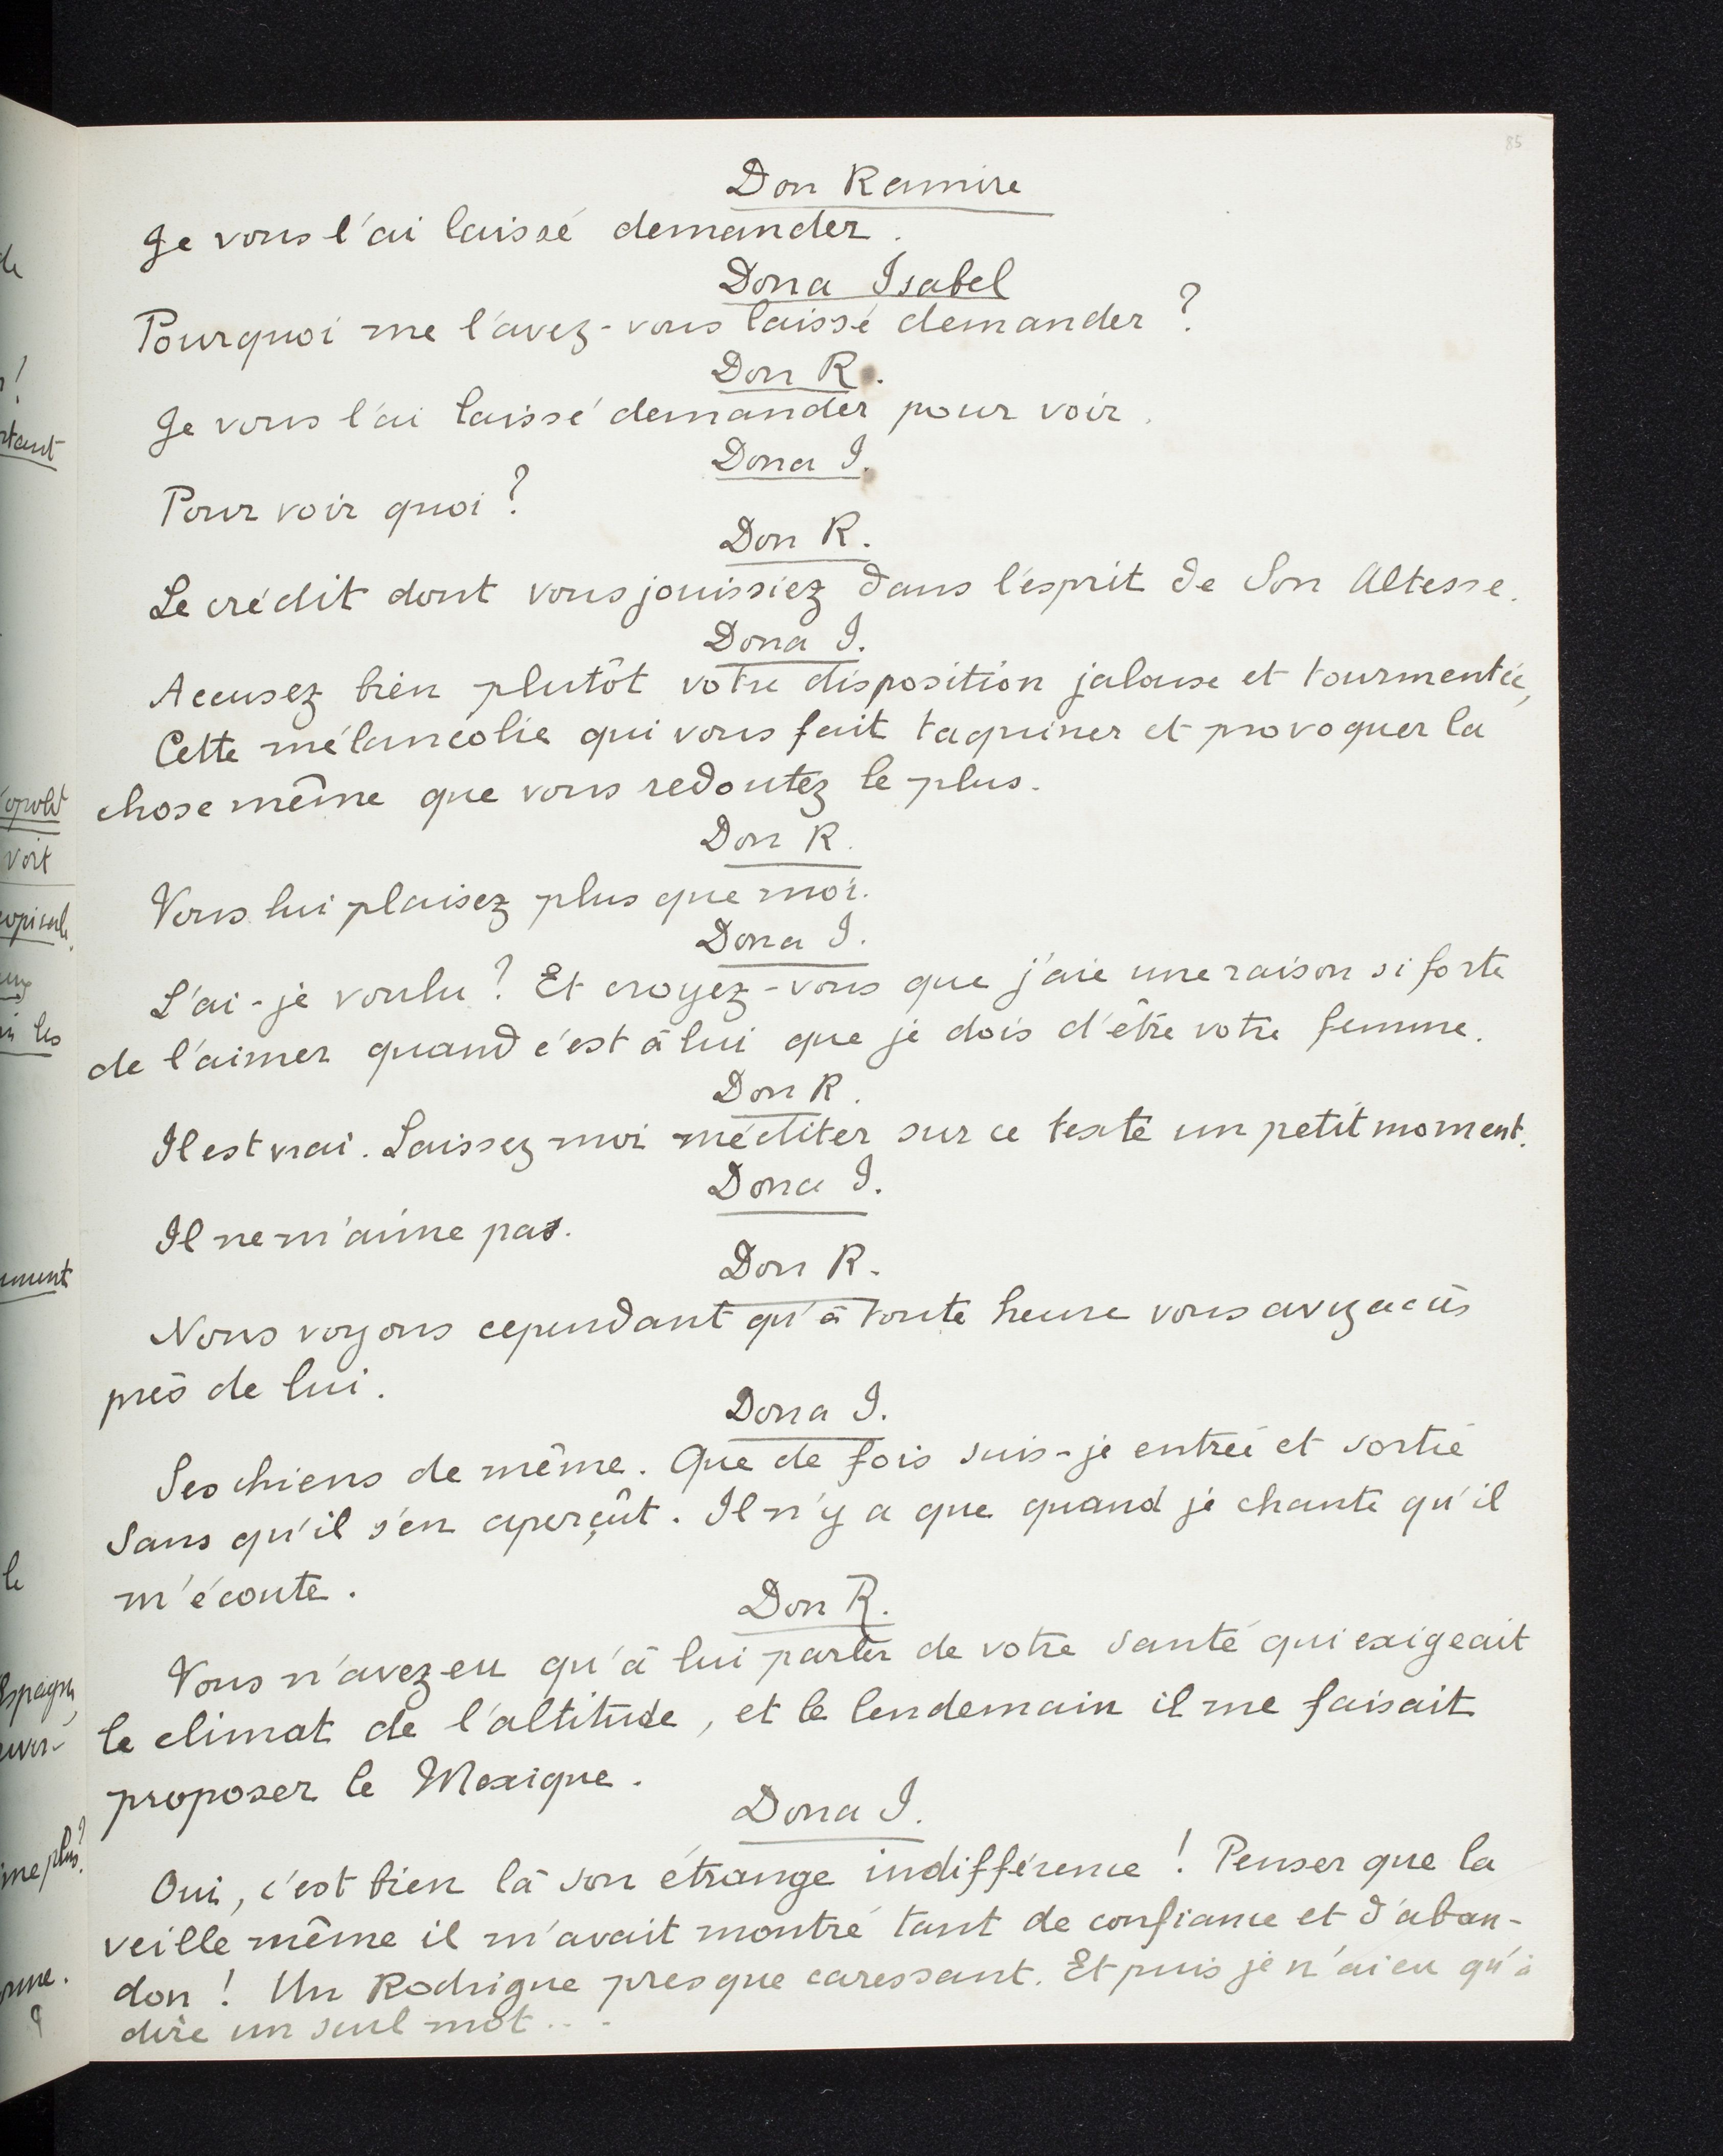 85
Don Ramire
Je vous l'ai laissé demander.
Dona Isabel
Pourquoi me l'avez-vous laissé demander ?
Don R.
Je vous l'ai laissé demander pour voir.
Dona I.
Pour voir quoi ?
Don R.
Le crédit dont vous jouissiez dans l'esprit de Son Altesse.
Dona I.
Accusez bien plutôt votre disposition jalouse et tourmentée,
Cette mélancolie qui vous fait taquiner et provoquer la
chose même que vous redoutez le plus.
Don R.
Vous lui plaisez plus que moi.
Dona I.
L'ai-je voulu ? Et croyez-vous que j'aie une raison si forte
de l'aimer quand c'est à lui que je dois d'être votre femme.
Don R.
Il est vrai. Laissez moi méditer sur ce texte un petit moment.
Dona I.
Il ne m'aime pas.
Don R.
Nous voyons cependant qu'à toute heure vous avez accès
près de lui.
Dona I.
Ses chiens de même. Que de fois suis-je entrée et sortie
Sans qu'il s'en aperçût. Il n'y a que quand je chante qu'il
m'écoute.
Don R.
Vous n'avez eu qu'à lui parler de votre santé qui exigeait
le climat de l'altitude, et le lendemain il me faisait
proposer le Mexique.
Dona I.
Oui, c'est bien là son étrange indifférence ! Penser que la
veille même il m'avait montré tant de confiance et d'aban-
don ! Un Rodrigue presque caressant. Et puis je n'ai eu qu'à
dire un seul mot...